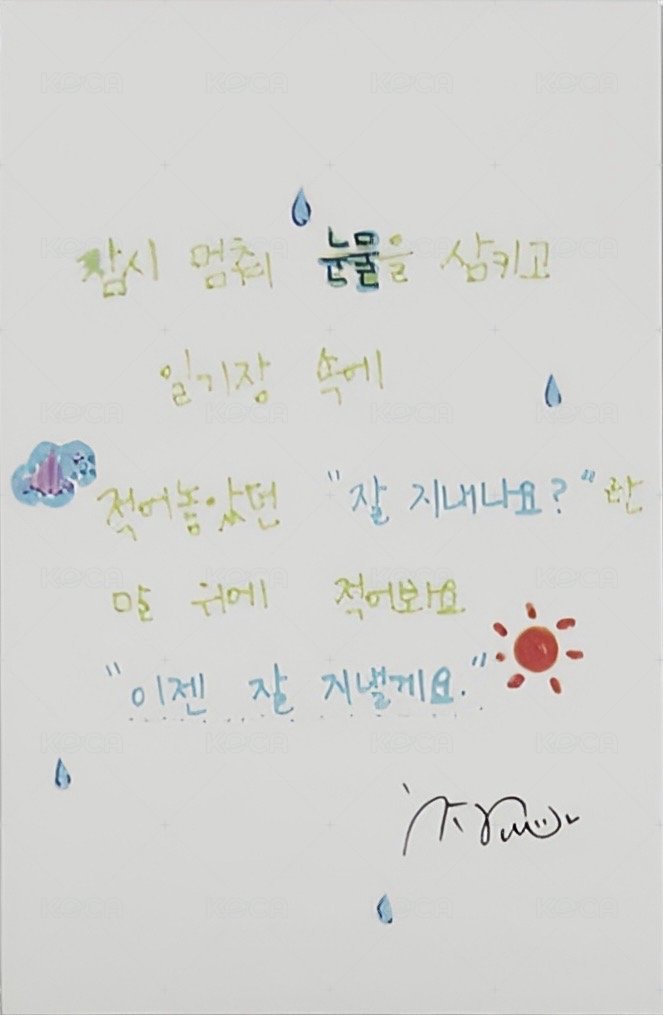 잠시 멈춰 눈물을 삼키고
일기장 속에
적어놓았던 "잘 지내나요?"란
말 위에 적어봐요
"이젠 잘 지낼게요."